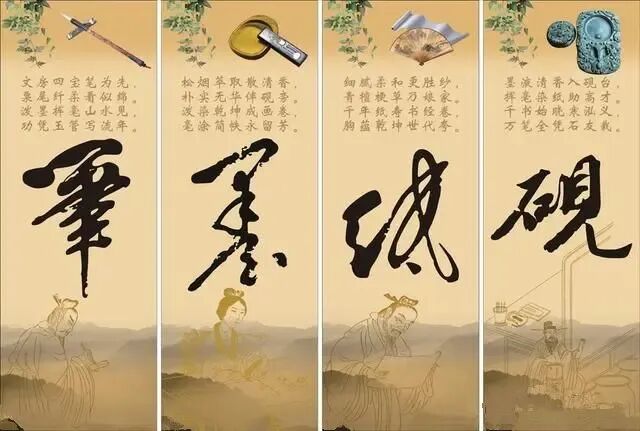 文房四宝笔为先，
泉尾纤柔看似绵。
泼墨挥毫山水见，
功凭玉管写流年。
筆
松烟萃取散清香，
朴尖无华伴砚旁。
泼染乾坤成画卷，
毫涂简帙永留芳。
墨
细腻柔和更胜纱，
青檀梗草乃娘家。
千年纸寿书经卷，
胸蕴乾坤世代夸。
紙
墨液清香入砚台，
挥毫染纸助高才。
千书始晓来泓义，
万笔全凭石友栽。
硯